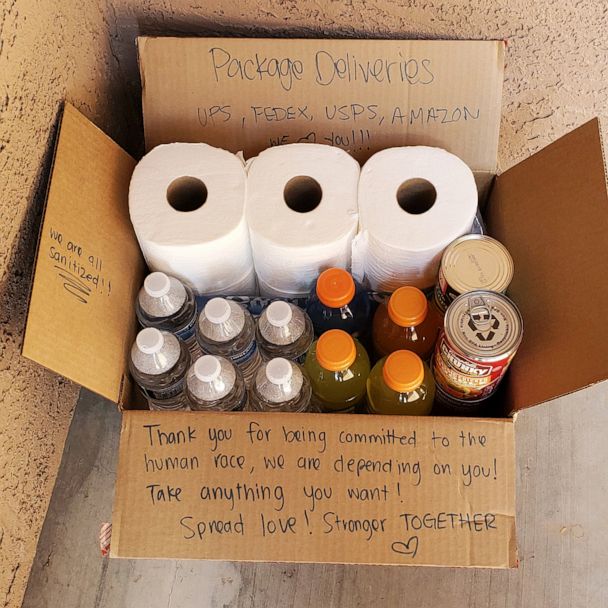 Package Deliveries
UPS, FEDEX, USPS, AMAZON
WE ♡ YOU!!!
we are all
sanitized!!
CHUNKY
Thank you for being committed to the
human race, we are depending on you!
Take anything you want!
Spread love! Stronger TOGETHER
♡